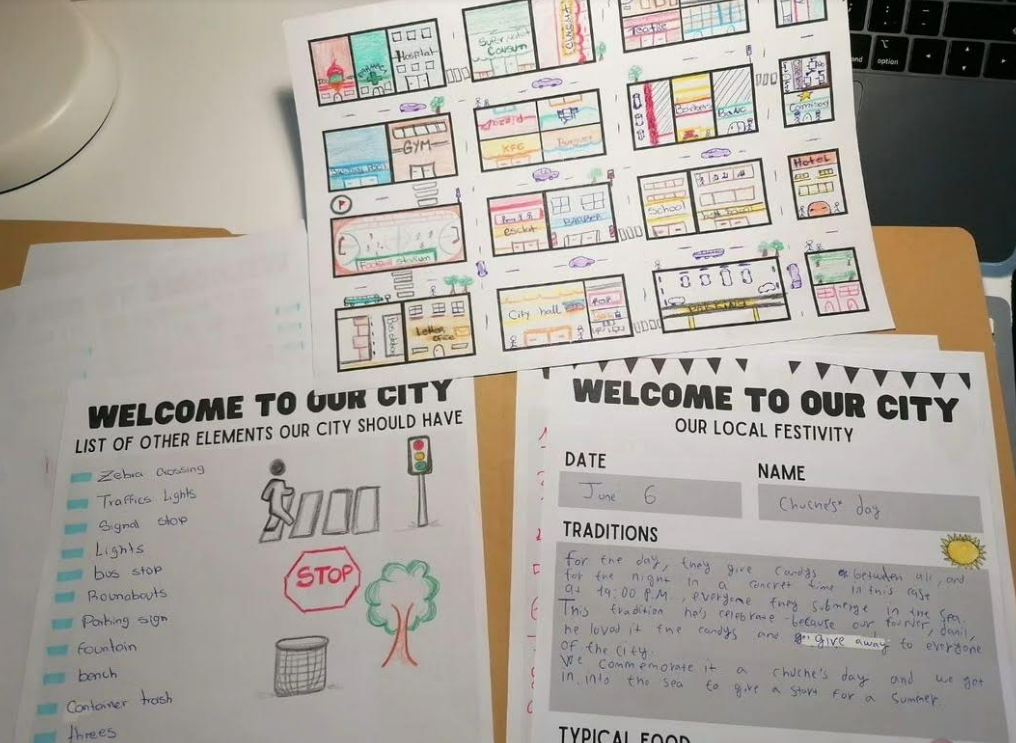 Hospital
Consum
circuit
GYM
KFC
Burguer
Barbers
BANC
BARBER
School
Hotel
Football stadium
City hall
Letter
PARKING
option
WELCOME TO OUR CITY
LIST OF OTHER ELEMENTS OUR CITY SHOULD HAVE
Zebra crossing
Traffics Lights
Signal stop
Lights
bus stop
Roundabouts
Parking sign
fountain
bench
Container trash
threes
STOP
WELCOME TO OUR CITY
OUR LOCAL FESTIVITY
DATE
NAME
June 6
Chuche's day
TRADITIONS
for the day, they give candys between all, and
for the night in a concret time in this case
as 19:00 P.M. everyone they submerge in the sea.
This tradition he's celebrate because our founder, danil,
he loved it the candys and give away to everyone
of the city.
We commemorate it a chuche's day and we get
in into the sea to give a start for a summer.
TYPICAL FOOD